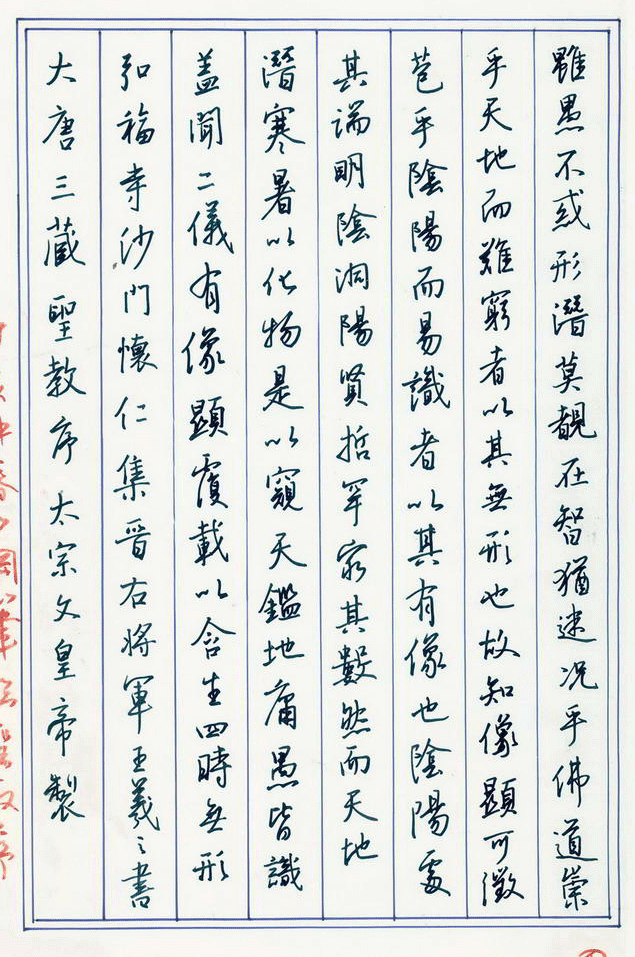 大唐三蔵聖教序太宗文皇帝製
弘福寺沙門懷仁集晉右將軍王羲之書
盖聞二儀有像顯覆載以含生四時無形
潛寒暑以化物是以窺天鑑地庸愚皆識
其端明陰洞陽賢哲罕窮其數然而天地
苞乎陰陽而易識者以其有像也陰陽處
乎天地而難窮者以其無形也故知像顯可徵
雖愚不惑形潛莫覩在智猶迷况乎佛道崇